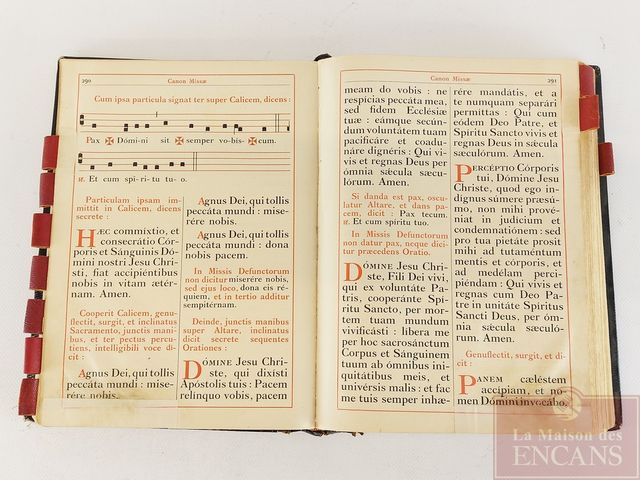 290
Canon Missæ
Cum ipsa particula signat ter super Calicem, dicens :
Pax ✠ Dómini sit ✠ semper vo-bis- ✠ cum.
℟. Et cum spi-ri-tu tu-o.
Particulam ipsam im-
mittit in Calicem, dicens
secrete :
HÆC commixtio, et
consecrátio Cór-
poris et Sánguinis Dó-
mini nostri Jesu Chri-
sti, fiat accipiéntibus
nobis in vitam ætér-
nam. Amen.
Cooperit Calicem, genu-
flectit, surgit, et inclinatus
Sacramento, junctis mani-
bus, et ter pectus percu-
tiens, intelligibili voce di-
cit :
Agnus Dei, qui tollis
peccáta mundi : mise-
rére nobis.
Agnus Dei, qui tollis
peccáta mundi : mise-
rére nobis.
Agnus Dei, qui tollis
peccáta mundi : dona
nobis pacem.
In Missis Defunctorum
non dicitur miserére nobis,
sed ejus loco, dona eis ré-
quiem, et in tertio additur
sempitérnam.
Deinde, junctis manibus
super Altare, inclinatus
dicit secrete sequentes
Orationes :
DÓMINE Jesu Chri-
ste, qui dixisti
Apóstolis tuis : Pacem
relinquo vobis, pacem
Canon Missæ
291
meam do vobis : ne
respícias peccáta mea,
sed fidem Ecclésiæ
tuæ : eámque secún-
dum voluntátem tuam
pacificáre et coadu-
náre dignéris : Qui vi-
vis et regnas Deus per
ómnia sǽcula sæcu-
lórum. Amen.
Si danda est pax, oscu-
latur Altare, et dans pa-
cem, dicit : Pax tecum.
℟. Et cum spíritu tuo.
In Missis Defunctorum
non datur pax, neque dici-
tur præcedens Oratio.
DÓMINE Jesu Chri-
ste, Fili Dei vivi,
qui ex voluntáte Pa-
tris, cooperánte Spí-
ritu Sancto, per mor-
tem tuam mundum
vivificásti : líbera me
per hoc sacrosánctum
Corpus et Sánguinem
tuum ab ómnibus ini-
quitátibus meis, et
univérsis malis : et fac
me tuis semper inhæ-
rére mandátis, et a
te numquam separári
permíttas : Qui cum
eódem Deo Patre, et
Spíritu Sancto vivis et
regnas Deus in sǽcula
sæculórum. Amen.
PERCÉPTIO Córporis
tui, Dómine Jesu
Christe, quod ego in-
dígnus súmere præsú-
mo, non mihi provéniat
in judícium et
condemnatiónem : sed
pro tua pietáte prosit
mihi ad tutaméntum
mentis et córporis, et
ad medélam perci-
piéndam : Qui vivis et
regnas cum Deo Pa-
tre in unitáte Spíritus
Sancti Deus, per óm-
nia sǽcula sæculó-
rum. Amen.
Genuflectit, surgit, et di-
cit :
PANEM cæléstem
accípiam, et no-
men Dómini invocábo.
La Maison des
ENCANS